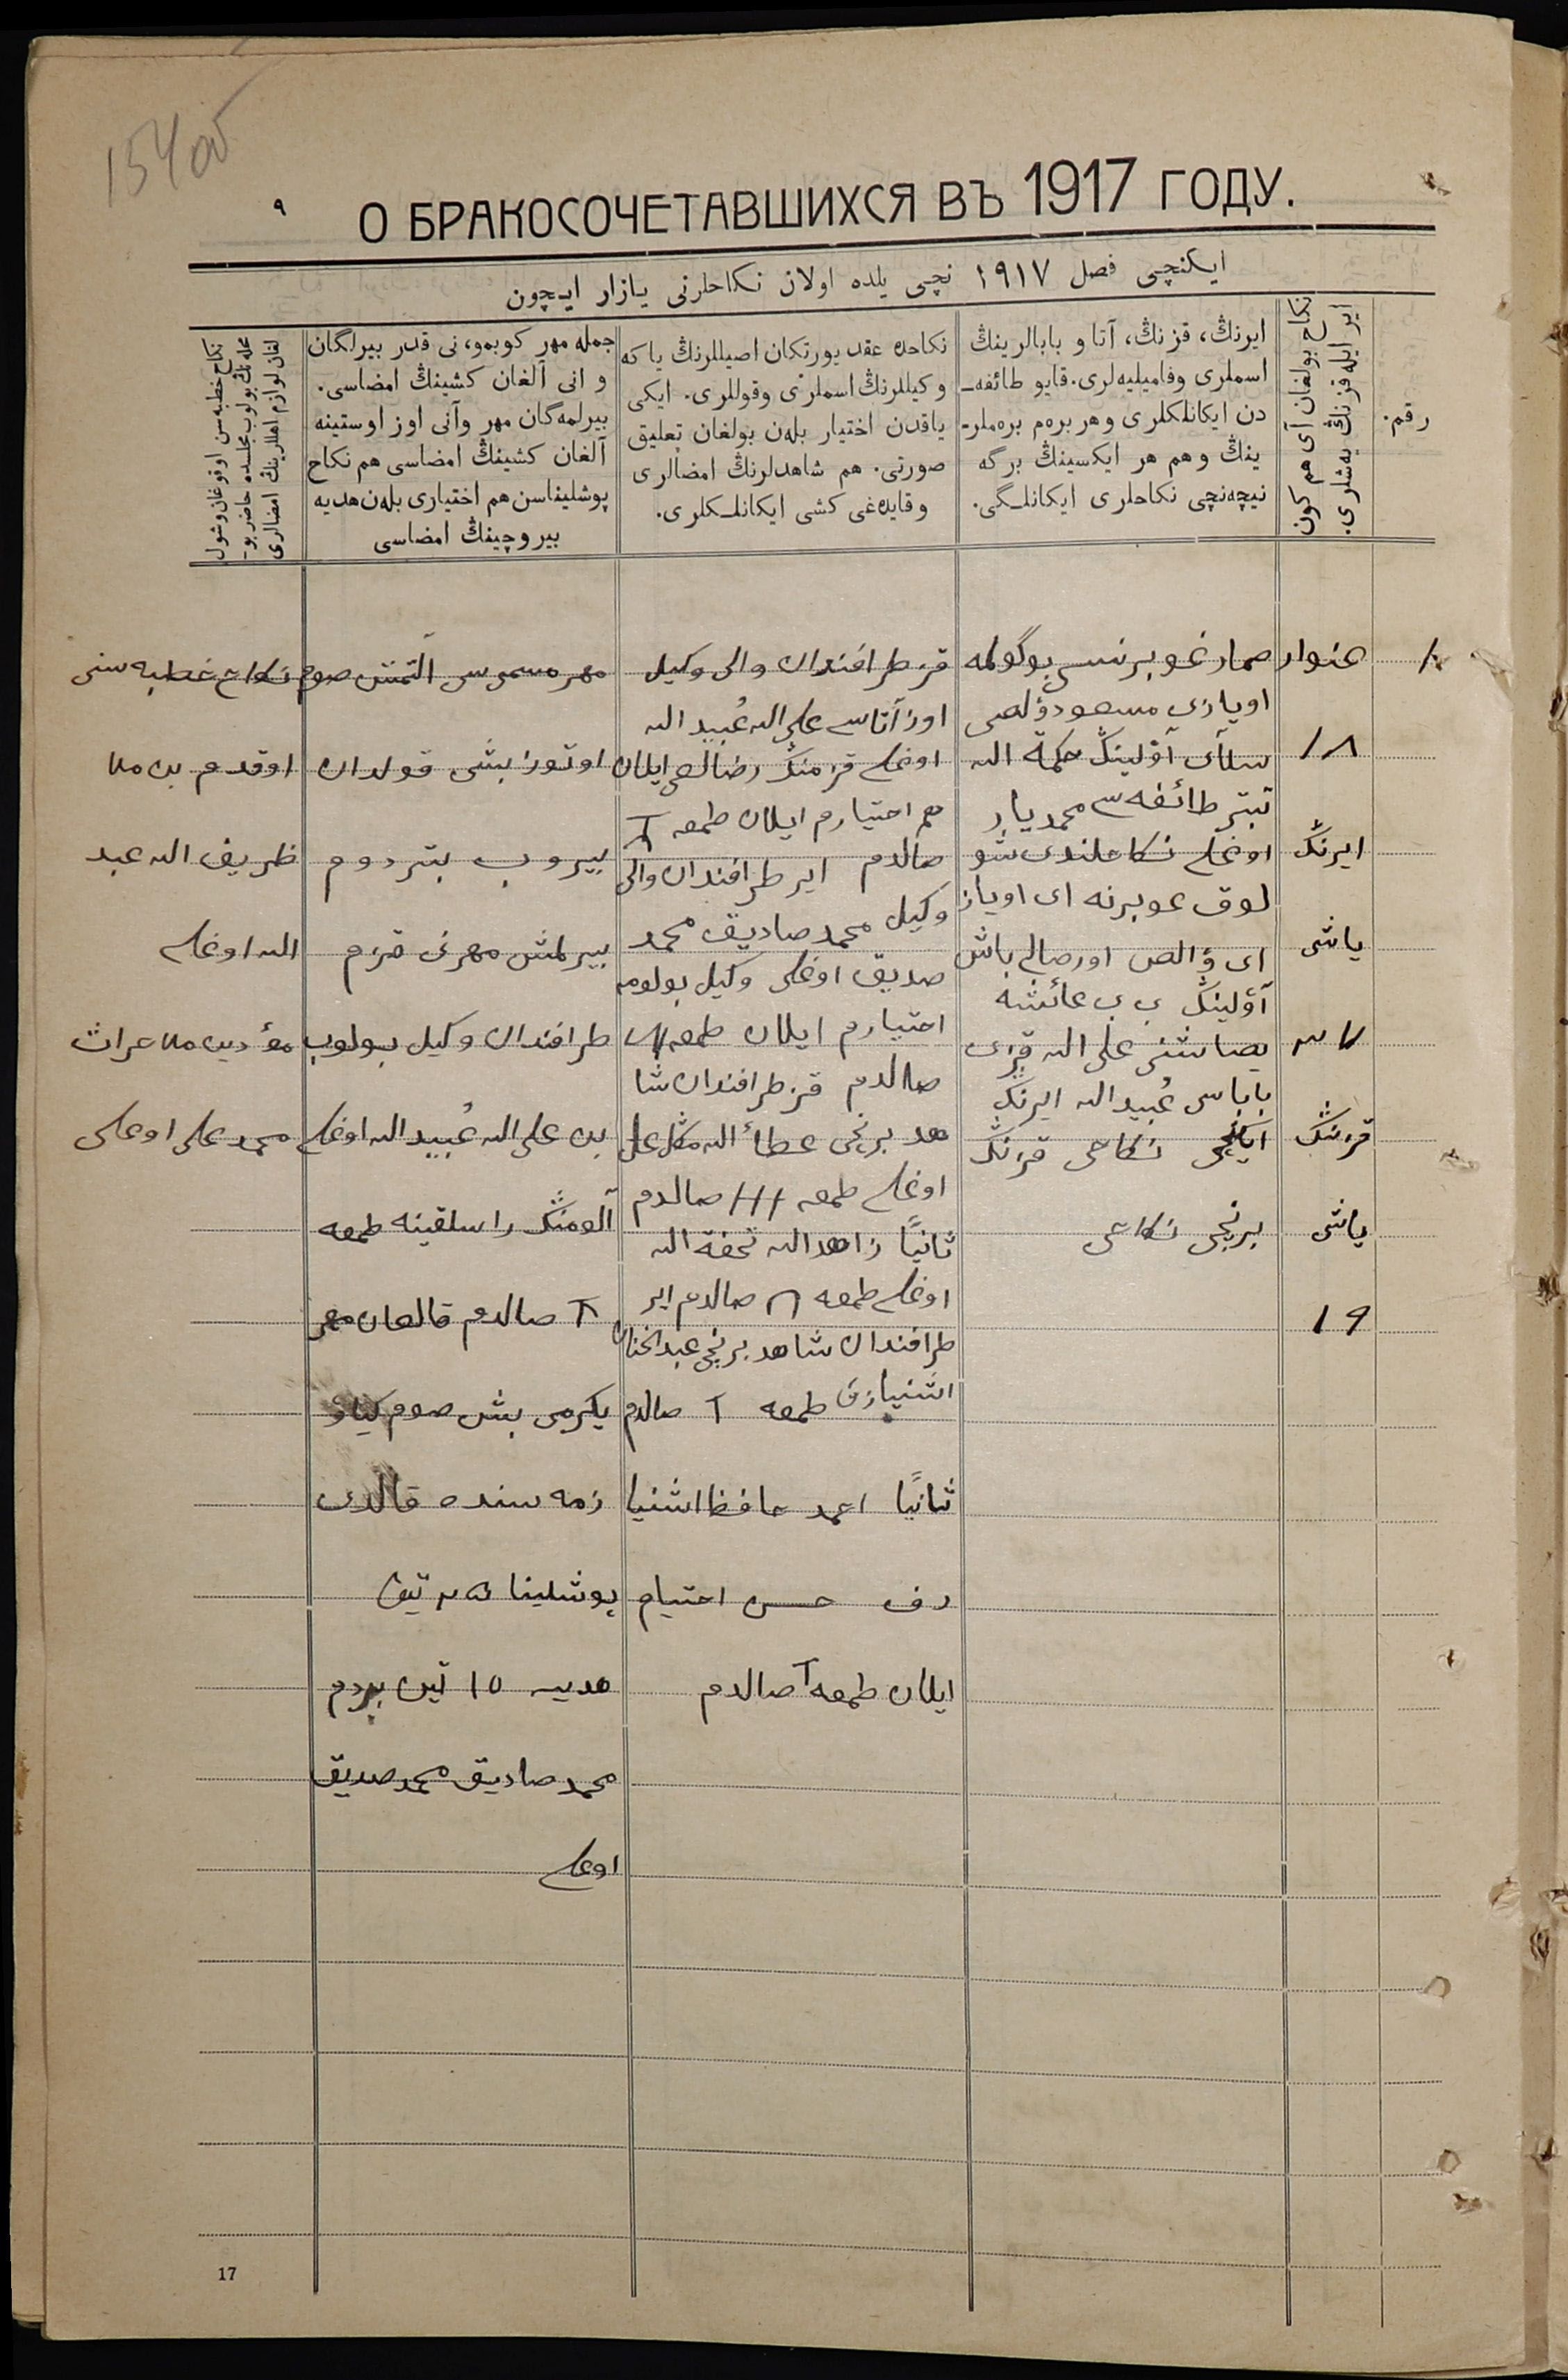 15400
٩
О БРАКОСОЧЕТАВШИХСЯ ВЪ 1917 ГОДУ.
ایکنچی فصل ١٩١٧ نچی یلده اولان نکاحلرنی یازار ایچون
رقم.
نکاح بولغان آی هم کون
ایر ایله قزنڭ یه‌شلری.
ایرنڭ، قزنڭ، آتا و بابالرینڭ
اسملری وفامیلیه‌لری. قایو طائفه‌ـ
دن ایکانلکلری وهر بره‌م بره‌ملرـ
ینڭ وهم هر ایکسینڭ برگه
نیچه‌نچی نکاحلری ایکانلـگی.
نکاحده عقد یورتکان اصیللرنڭ یا که
وکیللرنڭ اسملری وقوللری. ایکی
یاقدن اختیار بله‌ن بولغان تعلیق
صورتی. هم شاهدلرنڭ امضالری
وقایده‌غی کشی ایکانلـکلری.
جمله مهر کوبمو، نی قدر بیرلگان
و انی آلغان کشینڭ امضاسی.
بیرلمه‌گان مهر وآنی اوز اوستینه
آلغان کشینڭ امضاسی هم نکاح
پوشلیناسن هم اختیاری بله‌ن هدیه
بیروچینڭ امضاسی
نکاح خطبه‌سن اوقوغان وشول
محله‌نڭ بولوب مجلسده حاضر بوـ
لغان لوازم اهللرینڭ امضالری
١٨
ایرنڭ
یاشی
قزننڭ
یاشی
١٩
صمار غوبرنسی بوگولمه
اویازی
آوٚلینڭ حکمة الله
تبتر طائفه‌سی محمدیار
اوغلی نکاحلندی
آوٚلینڭ بی بی عائشه
علی الله قزی
باباسی عُبیدالله ایرنڭ
ایکنجی نکاحی قزنڭ
برنجی نکاحی
قز طرافندان والی وکیل
اوز آتاسی علی الله عُبید الله
اوغلی قزمنڭ رضالغی ایلان
هم احتیارم ایلان طمعه T
صالدم ایر طرافندان والی
وکیل محمد صادیق محمد
صدیق اوغلی وکیل بولوب
احتیارم ایلان طمعه
صالدم قز طرافندان شا
هد برنجی عطأ الله
اوغلی طمعه /// صالدم
ثانیًا زاهدالله تحفة الله
اوغلی طمعه صالدم ایر
طرافندان شاهد برنجی
طمعه T صالدم
ثانیًا احمد حافظ اشنیا
رف حسن احتیام
ایلان طمعه T صالدم
مهر مسمی سی آلتمش صوم
اوتوز بشی قولدان
بیروب بتردوم
بیرلمش مهرنی قزم
طرافندان وکیل بولوب
بن علی الله عُبید الله اوغلی
آلومنڭ راسلقینه طمعه
صالدم قالغان مهر
یکرمی بش صوم
زمه سنده قالدی
پوشلینا
هدیه ١٥ تین بردم
محمد صادیق محمد صدیق
اوغلی
نکاح خطبه سنی
اوقدم بن ملا
ظریف الله عبد
الله اوغلی
محمد علی اوغلی
17